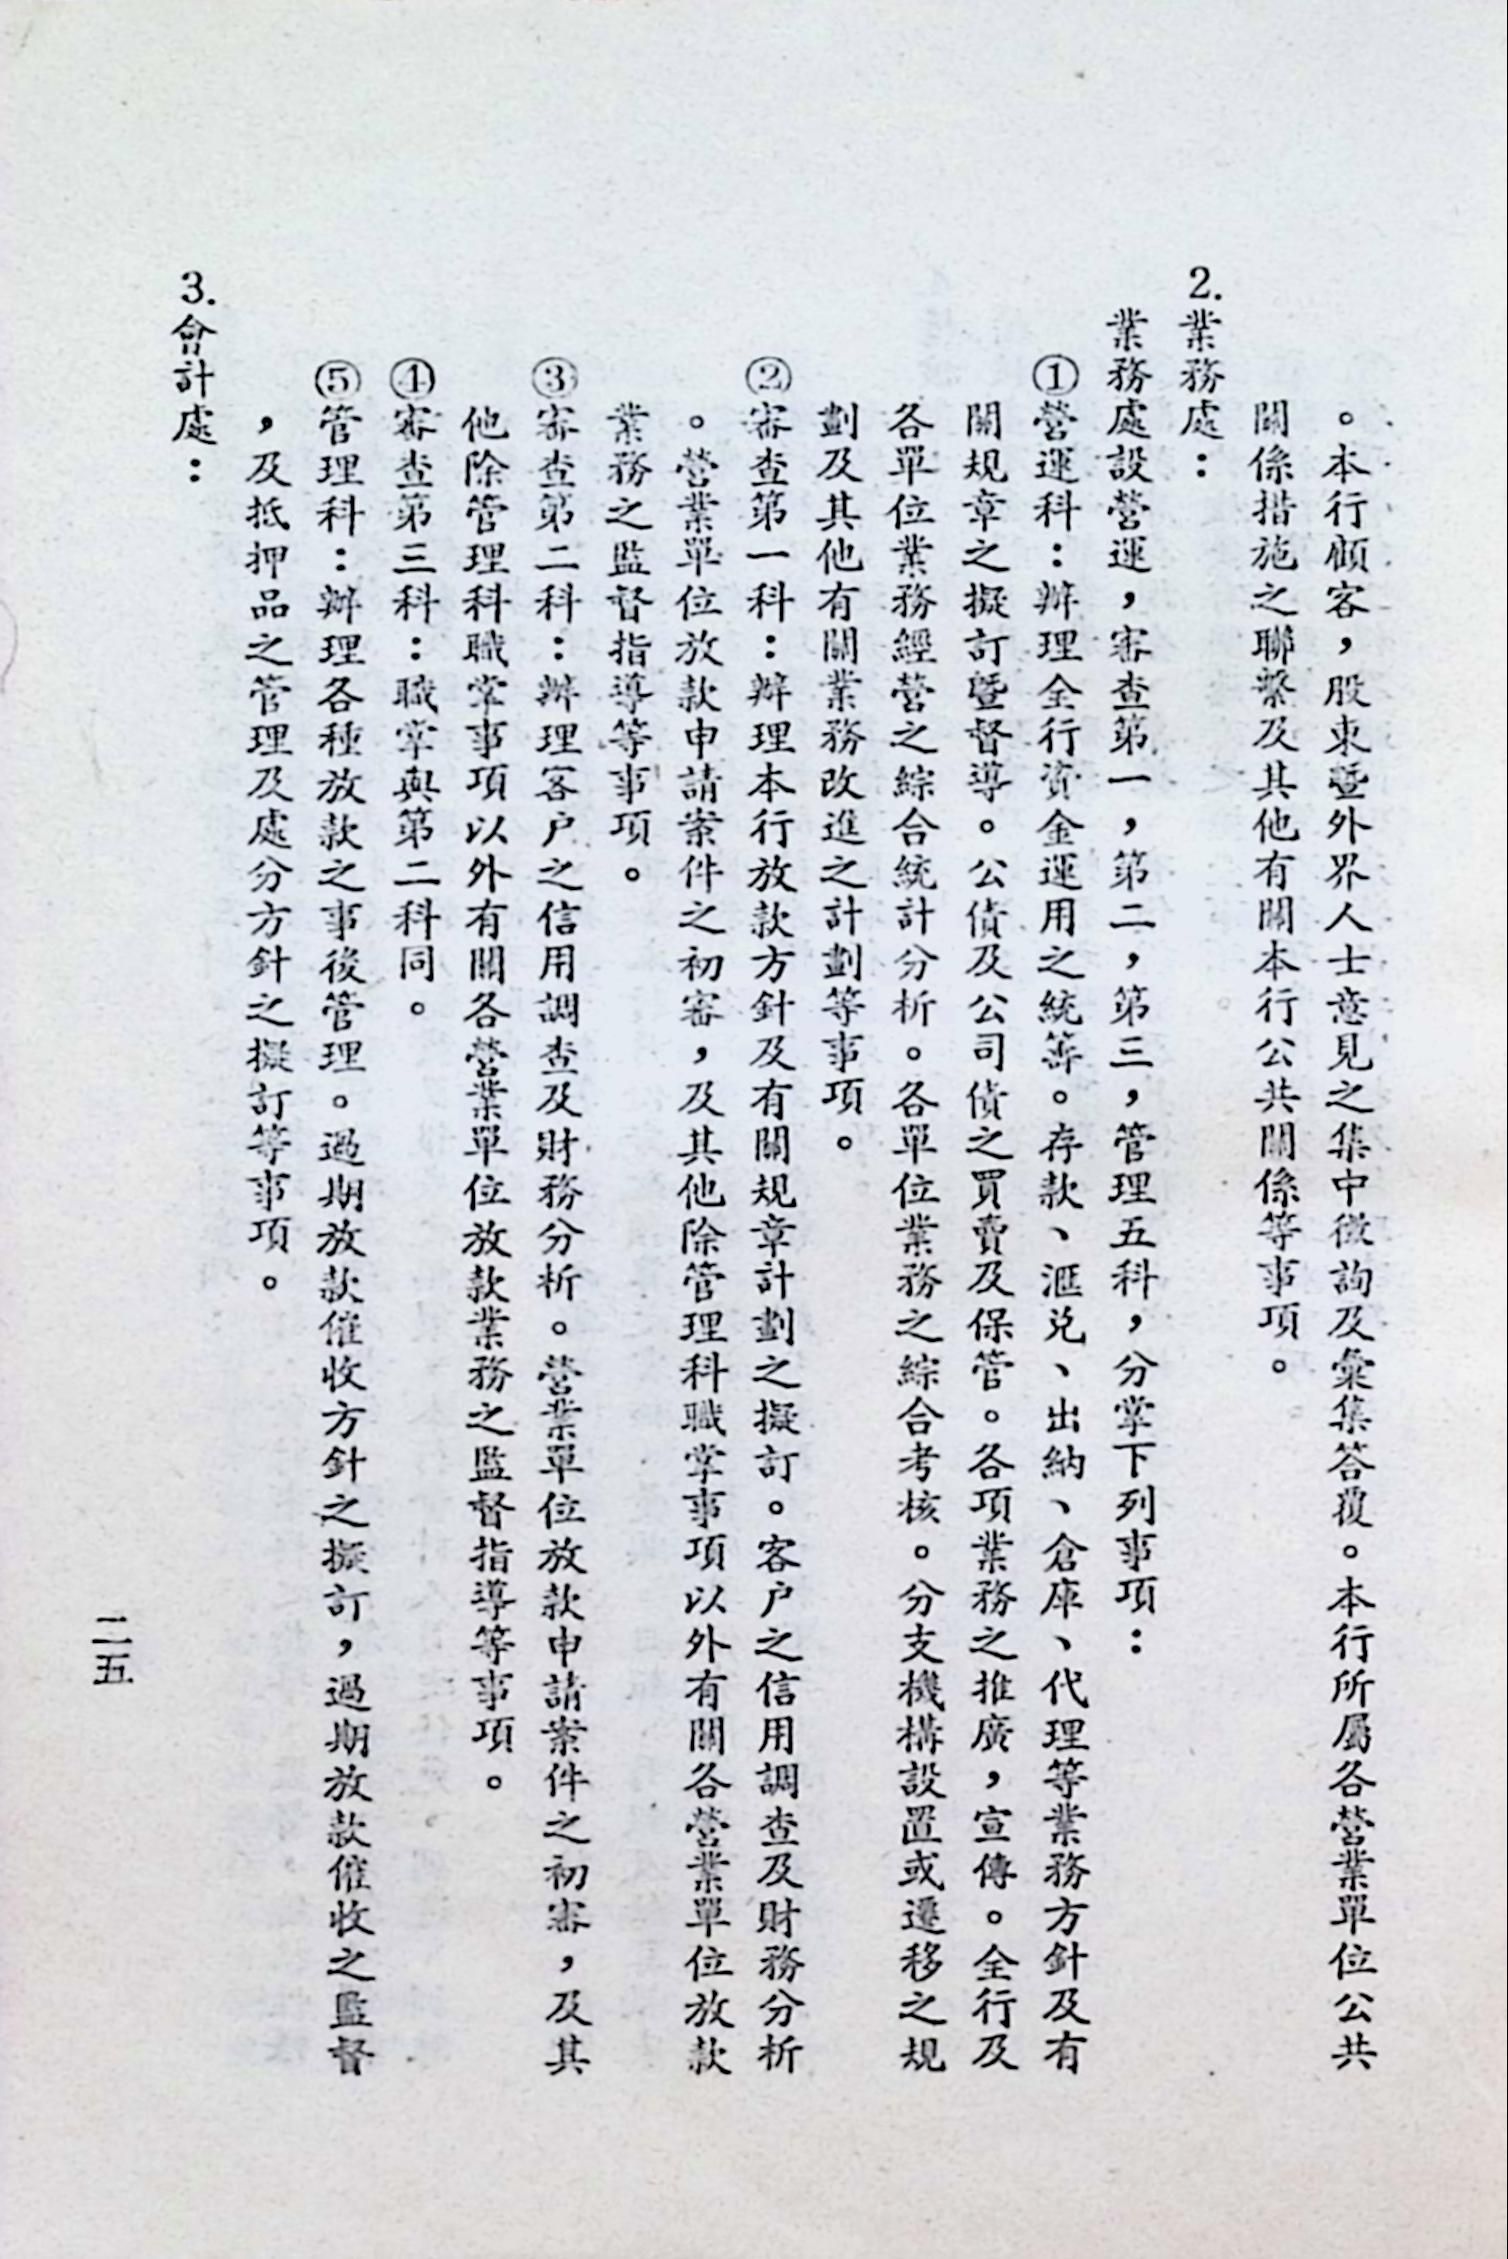 。本行顧客，股東暨外界人士意見之集中徵詢及彙集答覆。本行所屬各營業單位公共
關係措施之聯繫及其他有關本行公共關係等事項。
2.業務處：
業務處設營運，審查第一，第二，第三，管理五科，分掌下列事項：
①營運科：辦理全行資金運用之統籌。存款、滙兌、出納、倉庫、代理等業務方針及有
關規章之擬訂暨督導。公債及公司債之買賣及保管。各項業務之推廣，宣傳。全行及
各單位業務經營之綜合統計分析。各單位業務之綜合考核。分支機構設置或遷移之規
劃及其他有關業務改進之計劃等事項。
②審查第一科：辦理本行放款方針及有關規章計劃之擬訂。客戶之信用調查及財務分析
。營業單位放款申請案件之初審，及其他除管理科職掌事項以外有關各營業單位放款
業務之監督指導等事項。
③審查第二科：辦理客戶之信用調查及財務分析。營業單位放款申請案件之初審，及其
他除管理科職掌事項以外有關各營業單位放款業務之監督指導等事項。
④審查第三科：職掌與第二科同。
⑤管理科：辦理各種放款之事後管理。過期放款催收方針之擬訂，過期放款催收之監督
，及抵押品之管理及處分方針之擬訂等事項。
3.會計處：
二五